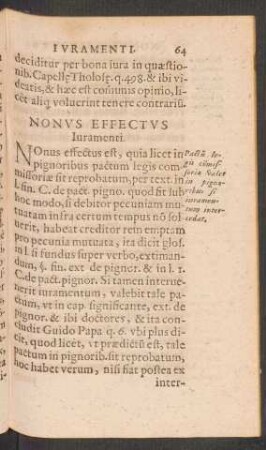 IVRAMENTI. 64
deciditur per bona iura in quæstio-
nib. Capellę Tholosę. q. 498. & ibi vi-
deatis, & hæc est cōmunis opinio, li-
cèt aliq voluerint tenere contrariū.
NONVS EFFECTVS
Iuramenti.
NOnus effectus est, quia licet in
pignoribus pactum legis com
missoriæ sit reprobatum, per text. in
l. fin. C. de pact. pigno. quod sit sub
hoc modo, si debitor pecuniam mu-
tuatam infra certum tempus nō sol
uerit, habeat creditor rem emptam
pro pecunia mutuata, ita dicit glos.
in l. si fundus super verbo, extiman-
dum, §. fin. ext. de pignor. & in l. 1.
C. de pact. pignor. Si tamen interue-
nerit iuramentum, valebit tale pa-
ctum, vt in cap significante, ext. de
pignor. & ibi doctores, & ita con-
cludit Guido Papa q. 6. vbi plus di-
cit, quod licèt, vt prædictū est, tale
pactum in pignorib. sit reprobatum,
hoc habet verum, nisi fiat postea ex
inter-
Pactū le-
gis cōmis-
soriæ valet
in pigno-
ribus si
iuramen-
tum inter-
cedat.